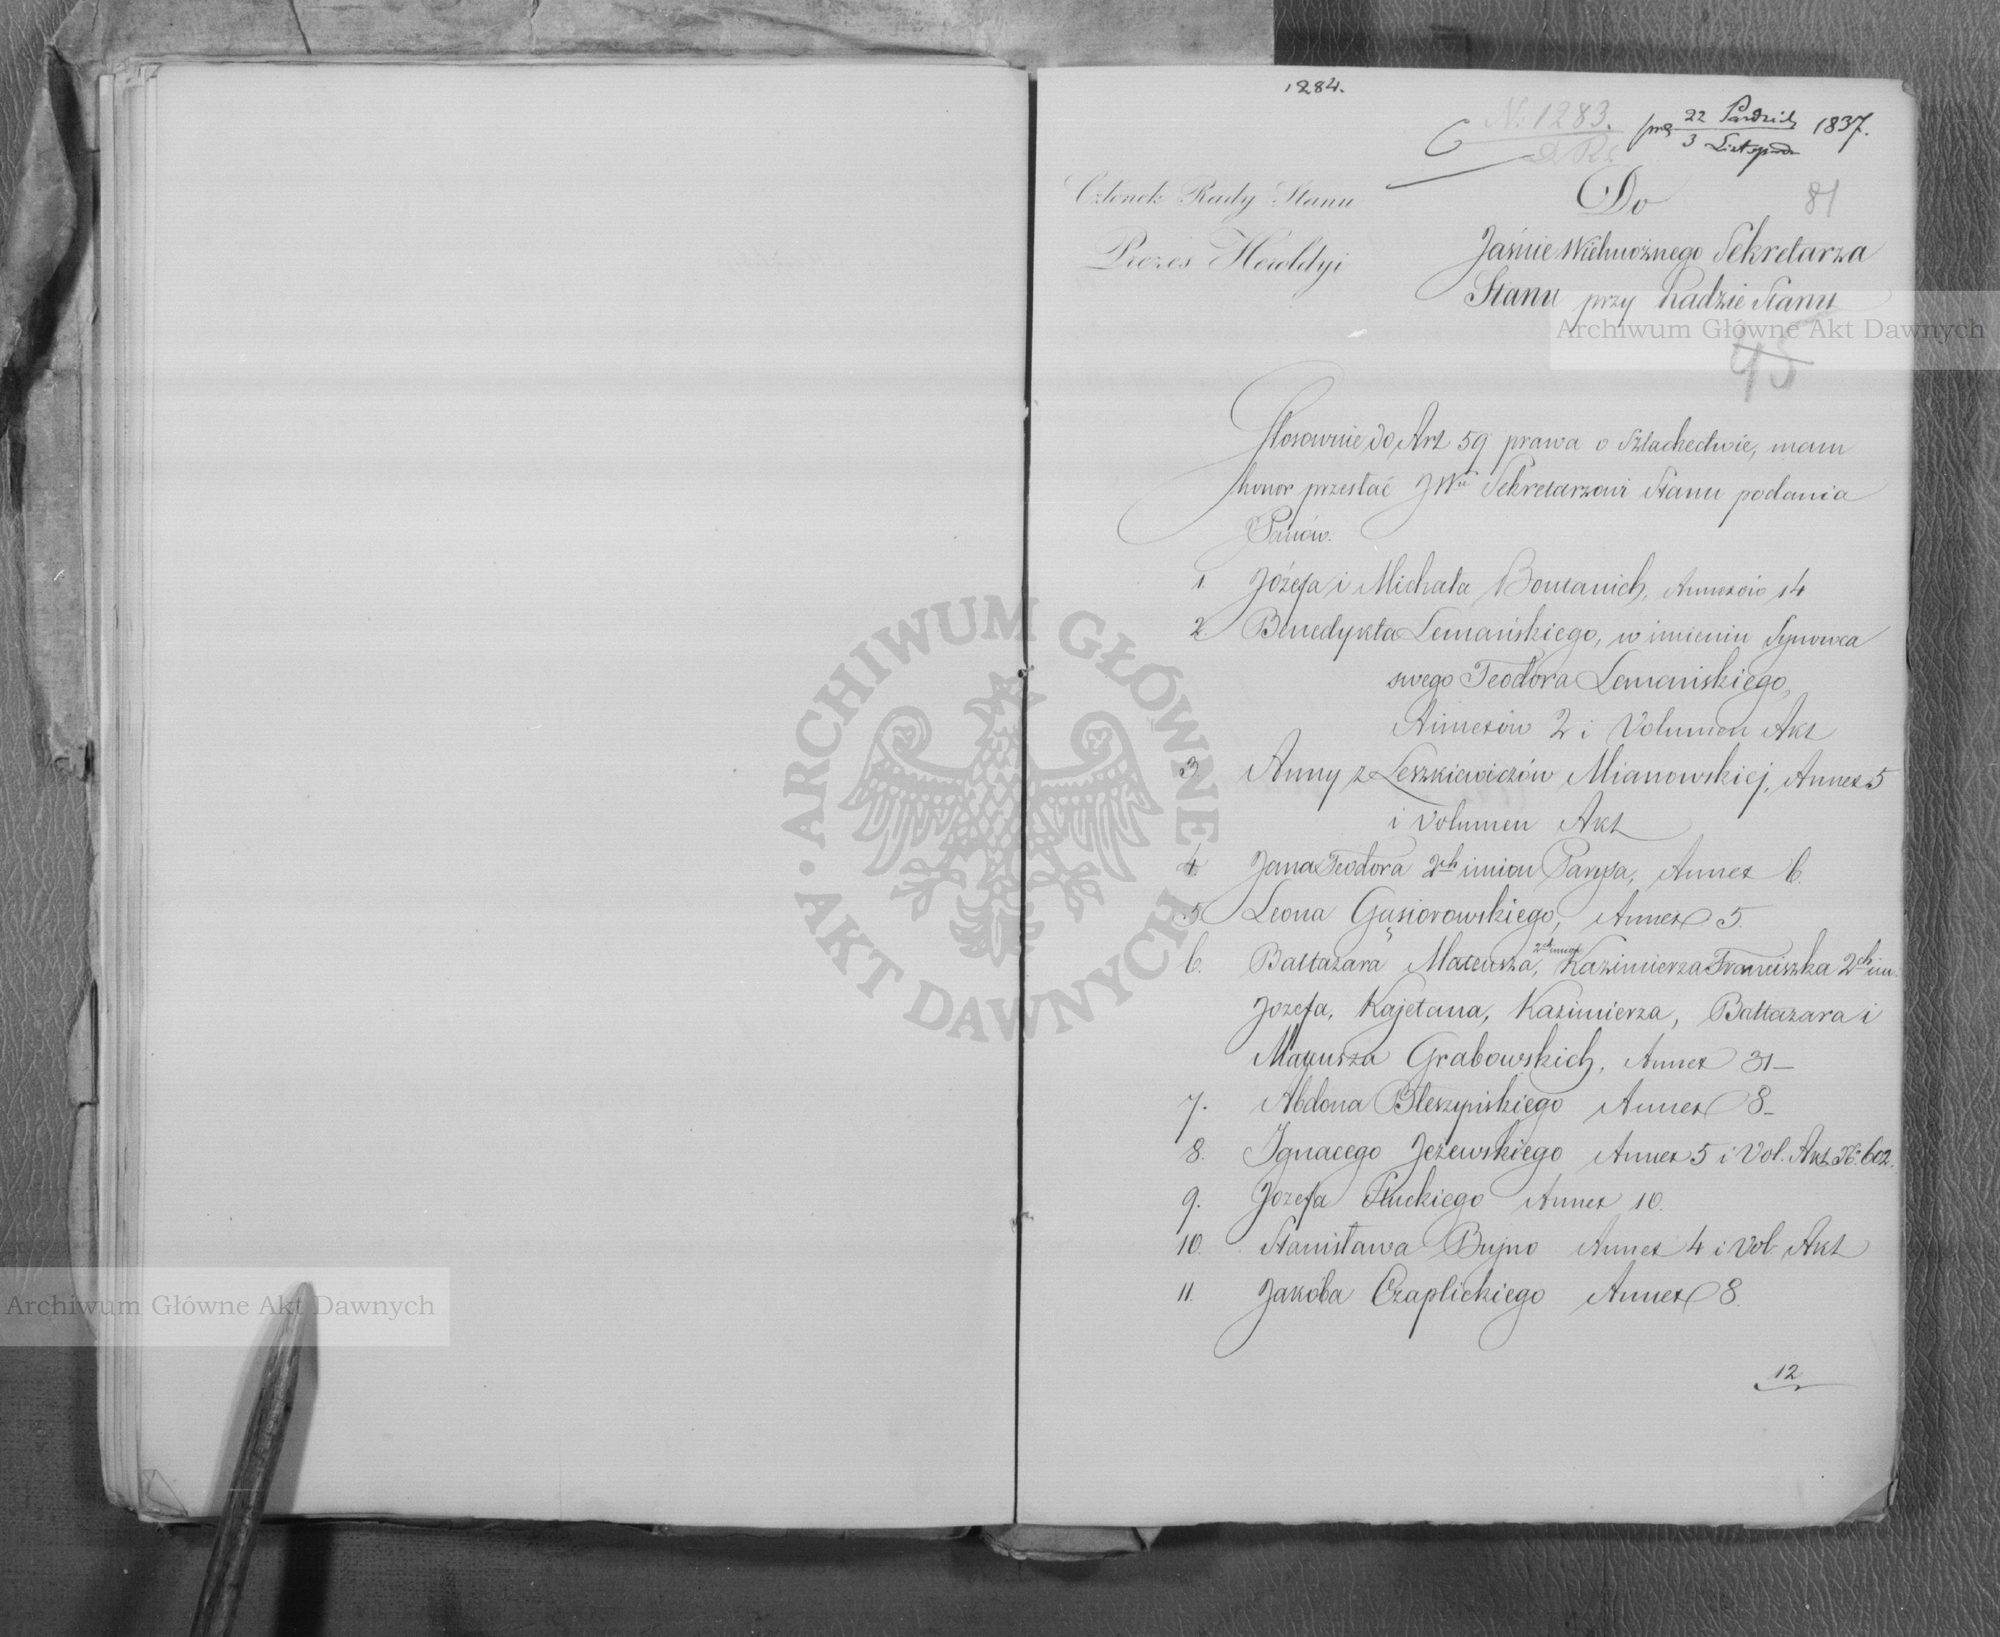 1284.
N. 1283.
22 Paździer 1837.
3 Listopada
Członek Rady Stanu
Prezes Heroldyi
Do
81
Jaśnie Wielmożnego Sekretarza
Stanu przy Radzie Stanu
Archiwum Główne Akt Dawnych
95
Stosownie do Art 59 prawa o Szlachectwie, mam
honor przesłać JWu Sekretarzowi Stanu podania
Panów:
1. Józefa i Michała Annexów 14
2. Benedykta Lemańskiego, w imieniu Synowca
swego Teodora Lemańskiego,
Annexów 2 i Volumen Akt
3. Anny z Leszkiewiczów Mianowskiej, Annex 5
i Volumen Akt
4 Jana Teodora 2ch imion Parysa, Annex 6.
5 Leona Gąsiorowskiego, Annex 5.
6. Baltazara Mateusza, 2ch imion Kazimierza Franciszka 2ch im.
Jozefa, Kajetana, Kazimierza, Baltazara i
Mateusza Grabowskich, Annex 31–
7. Abdona Bleszyńskiego Annex 8–
8. Ignacego Jeżewskiego Annex 5 i Vol. Akt No. 602.
9. Jozefa Słuckiego Annex 10.
10. Stanisława Bujno Annex 4 i Vol. Akt
11. Jakóba Czaplickiego Annex 8.
12
ARCHIWUM GŁÓWNE AKT DAWNYCH
Archiwum Główne Akt Dawnych